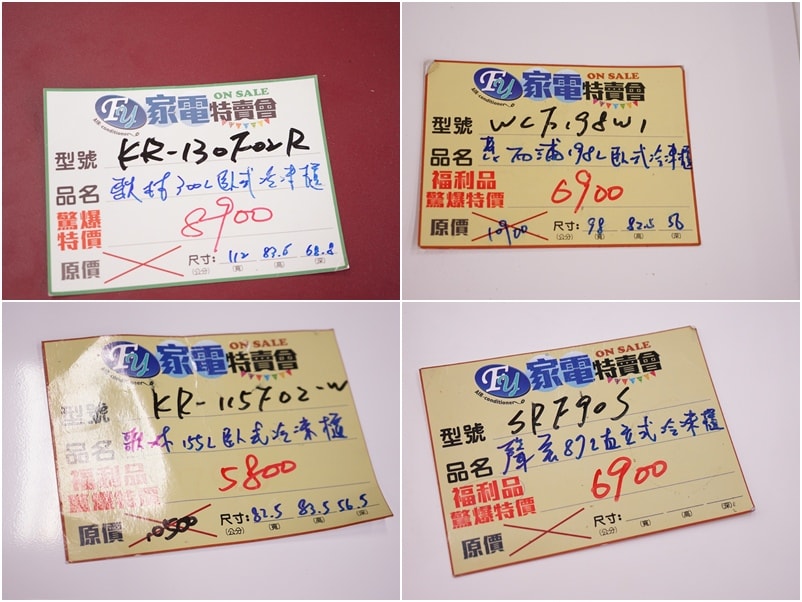 FU 家電特賣會
ON SALE
AIR-conditioner
型號 KR-130F02R
品名 歌林300L臥式冷凍櫃
驚爆特價 8900
原價
尺寸: 112 83.6 62.8
(公分) (寬) (高) (深)
FU 家電特賣會
ON SALE
AIR-conditioner
型號 WCF198W1
品名 惠而浦198L臥式冷凍櫃
福利品
驚爆特價 6900
原價 10900
尺寸: 98 82.5 56
(公分) (寬) (高) (深)
FU 家電特賣會
ON SALE
AIR-conditioner
型號 KR-115F02-W
品名 歌林155L臥式冷凍櫃
福利品
驚爆特價 5800
原價 10500
尺寸: 82.5 83.5 56.5
(公分) (寬) (高) (深)
FU 家電特賣會
ON SALE
AIR-conditioner
型號 SRF90S
品名 聲寶87L直立式冷凍櫃
福利品
驚爆特價 6900
原價
尺寸:
(公分) (寬) (高) (深)